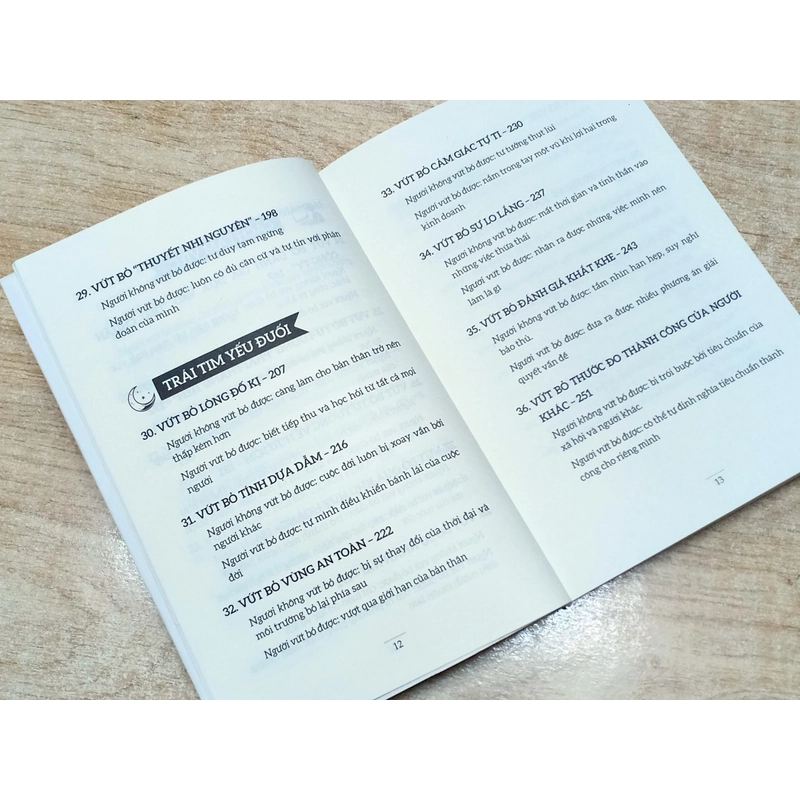 29. VỨT BỎ "THUYẾT NHỊ NGUYÊN" – 198
Người không vứt bỏ được: tư duy tạm ngừng
Người vứt bỏ được: luôn có đủ căn cứ và tự tin với phán
đoán của mình
TRÁI TIM YẾU ĐUỐI
30. VỨT BỎ LÒNG ĐỐ KỊ – 207
Người không vứt bỏ được: càng làm cho bản thân trở nên
thấp kém hơn
Người vứt bỏ được: biết tiếp thu và học hỏi từ tất cả mọi
người
31. VỨT BỎ TÍNH DỰA DẪM – 216
Người không vứt bỏ được: cuộc đời luôn bị xoay vần bởi
người khác
Người vứt bỏ được: tự mình điều khiển bánh lái của cuộc
đời
32. VỨT BỎ VÙNG AN TOÀN – 222
Người không vứt bỏ được: bị sự thay đổi của thời đại và
môi trường bỏ lại phía sau
Người vứt bỏ được: vượt qua giới hạn của bản thân
12
33. VỨT BỎ CẢM GIÁC TỰ TI – 230
Người không vứt bỏ được: tư tưởng thụt lùi
Người vứt bỏ được: nắm trong tay một vũ khí lợi hại trong
kinh doanh
34. VỨT BỎ SỰ LO LẮNG – 237
Người không vứt bỏ được: mất thời gian và tinh thần vào
những việc thừa thãi
Người vứt bỏ được: nhận ra được những việc mình nên
làm là gì
35. VỨT BỎ ĐÁNH GIÁ KHẮT KHE – 243
Người không vứt bỏ được: tầm nhìn hạn hẹp, suy nghĩ
bảo thủ.
Người vứt bỏ được: đưa ra được nhiều phương án giải
quyết vấn đề
36. VỨT BỎ THƯỚC ĐO THÀNH CÔNG CỦA NGƯỜI
KHÁC – 251
Người không vứt bỏ được: bị trói buộc bởi tiêu chuẩn của
xã hội và người khác.
Người vứt bỏ được: có thể tự định nghĩa tiêu chuẩn thành
công cho riêng mình
13